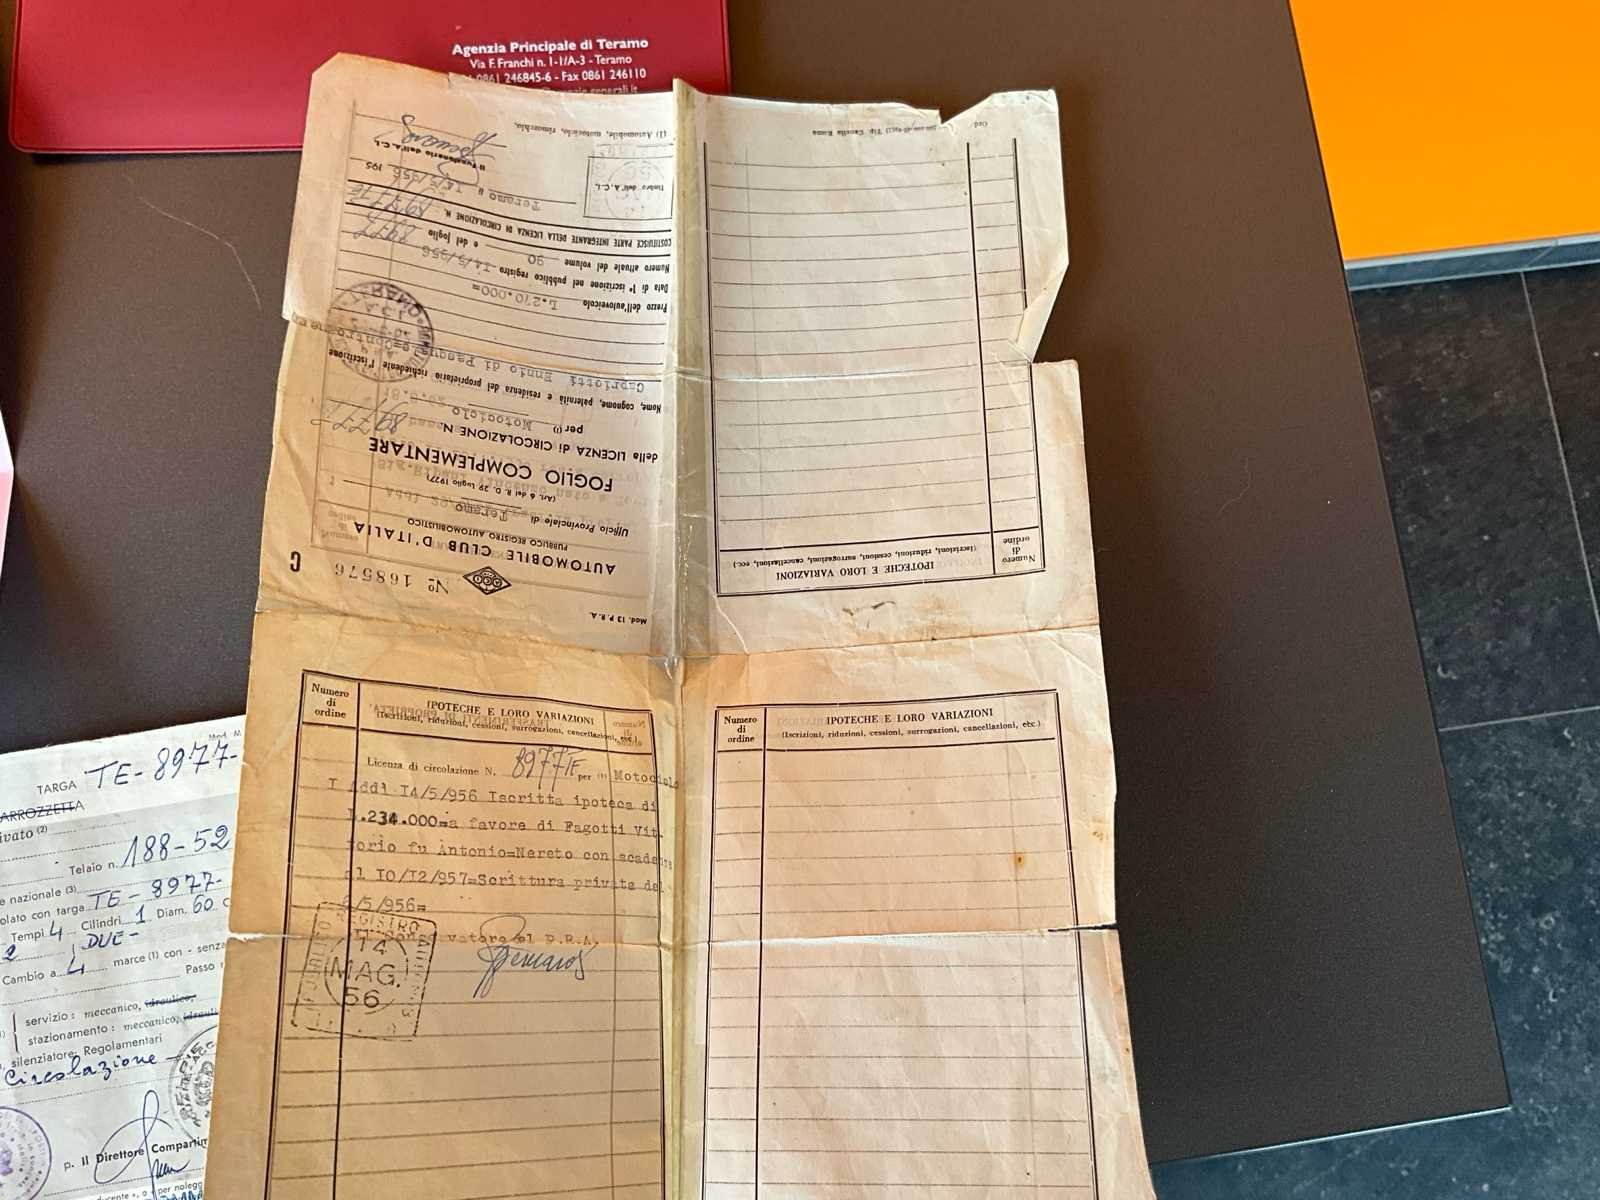 Agenzia Principale di Teramo
Via F. Franchi n. 1-1/A-3 - Teramo
0861 246845-6 - Fax 0861 246110
Mod. 13 P. R. A.
Nº 168576
C
AUTOMOBILE CLUB D'ITALIA
PUBBLICO REGISTRO AUTOMOBILISTICO
Ufficio Provinciale di Teramo
(Art. 6 del R. D. 29 Luglio 1927)
FOGLIO COMPLEMENTARE
della LICENZA di CIRCOLAZIONE N. 8977TE
per (1) Motociclo
Nome, cognome, paternità e residenza del proprietario richiedente l'iscrizione
Capriotti Ennio di
Prezzo dell'autoveicolo L.270.000=
Data di 1ª iscrizione nel pubblico registro I4/5/956
Numero attuale del volume 90 e del foglio 8977
COSTITUISCE PARTE INTEGRANTE DELLA LICENZA DI CIRCOLAZIONE N. 8977TE
Teramo li I4/5/956 195
Timbro dell'A.C.I.
Il Funzionario dell'A.C.I.
(1) Automobile, motociclo, rimorchio.
Numero di ordine
IPOTECHE E LORO VARIAZIONI
(Iscrizioni, riduzioni, cessioni, surrogazioni, cancellazioni, ecc.)
Tip. Cancella Roma
Numero di ordine
IPOTECHE E LORO VARIAZIONI
(Iscrizioni, riduzioni, cessioni, surrogazioni, cancellazioni, ecc.)
Licenza di circolazione N. 8977TE per (1) Motociclo
I Addì I4/5/956 Iscritta ipoteca di
L.234.000=a favore di Fagotti Vit-
torio fu Antonio=Nereto con
al I0/I2/957=Scrittura privata del
/5/956=
P.R.A.
REGISTRO
14
MAG.
56
Numero di ordine
IPOTECHE E LORO VARIAZIONI
(Iscrizioni, riduzioni, cessioni, surrogazioni, cancellazioni, etc.)
TARGA TE-8977-
CARROZZETTA
(2)
Telaio n. 188-52
nazionale (3) TE-8977-
con targa
Tempi 4 Cilindri 1 Diam. 60
2 DUE-
Cambio a 4 marce (1) con - senza
Passo
servizio: meccanico, idraulico,
stazionamento: meccanico,
silenziatore: Regolamentari
Circolazione
p. Il Direttore